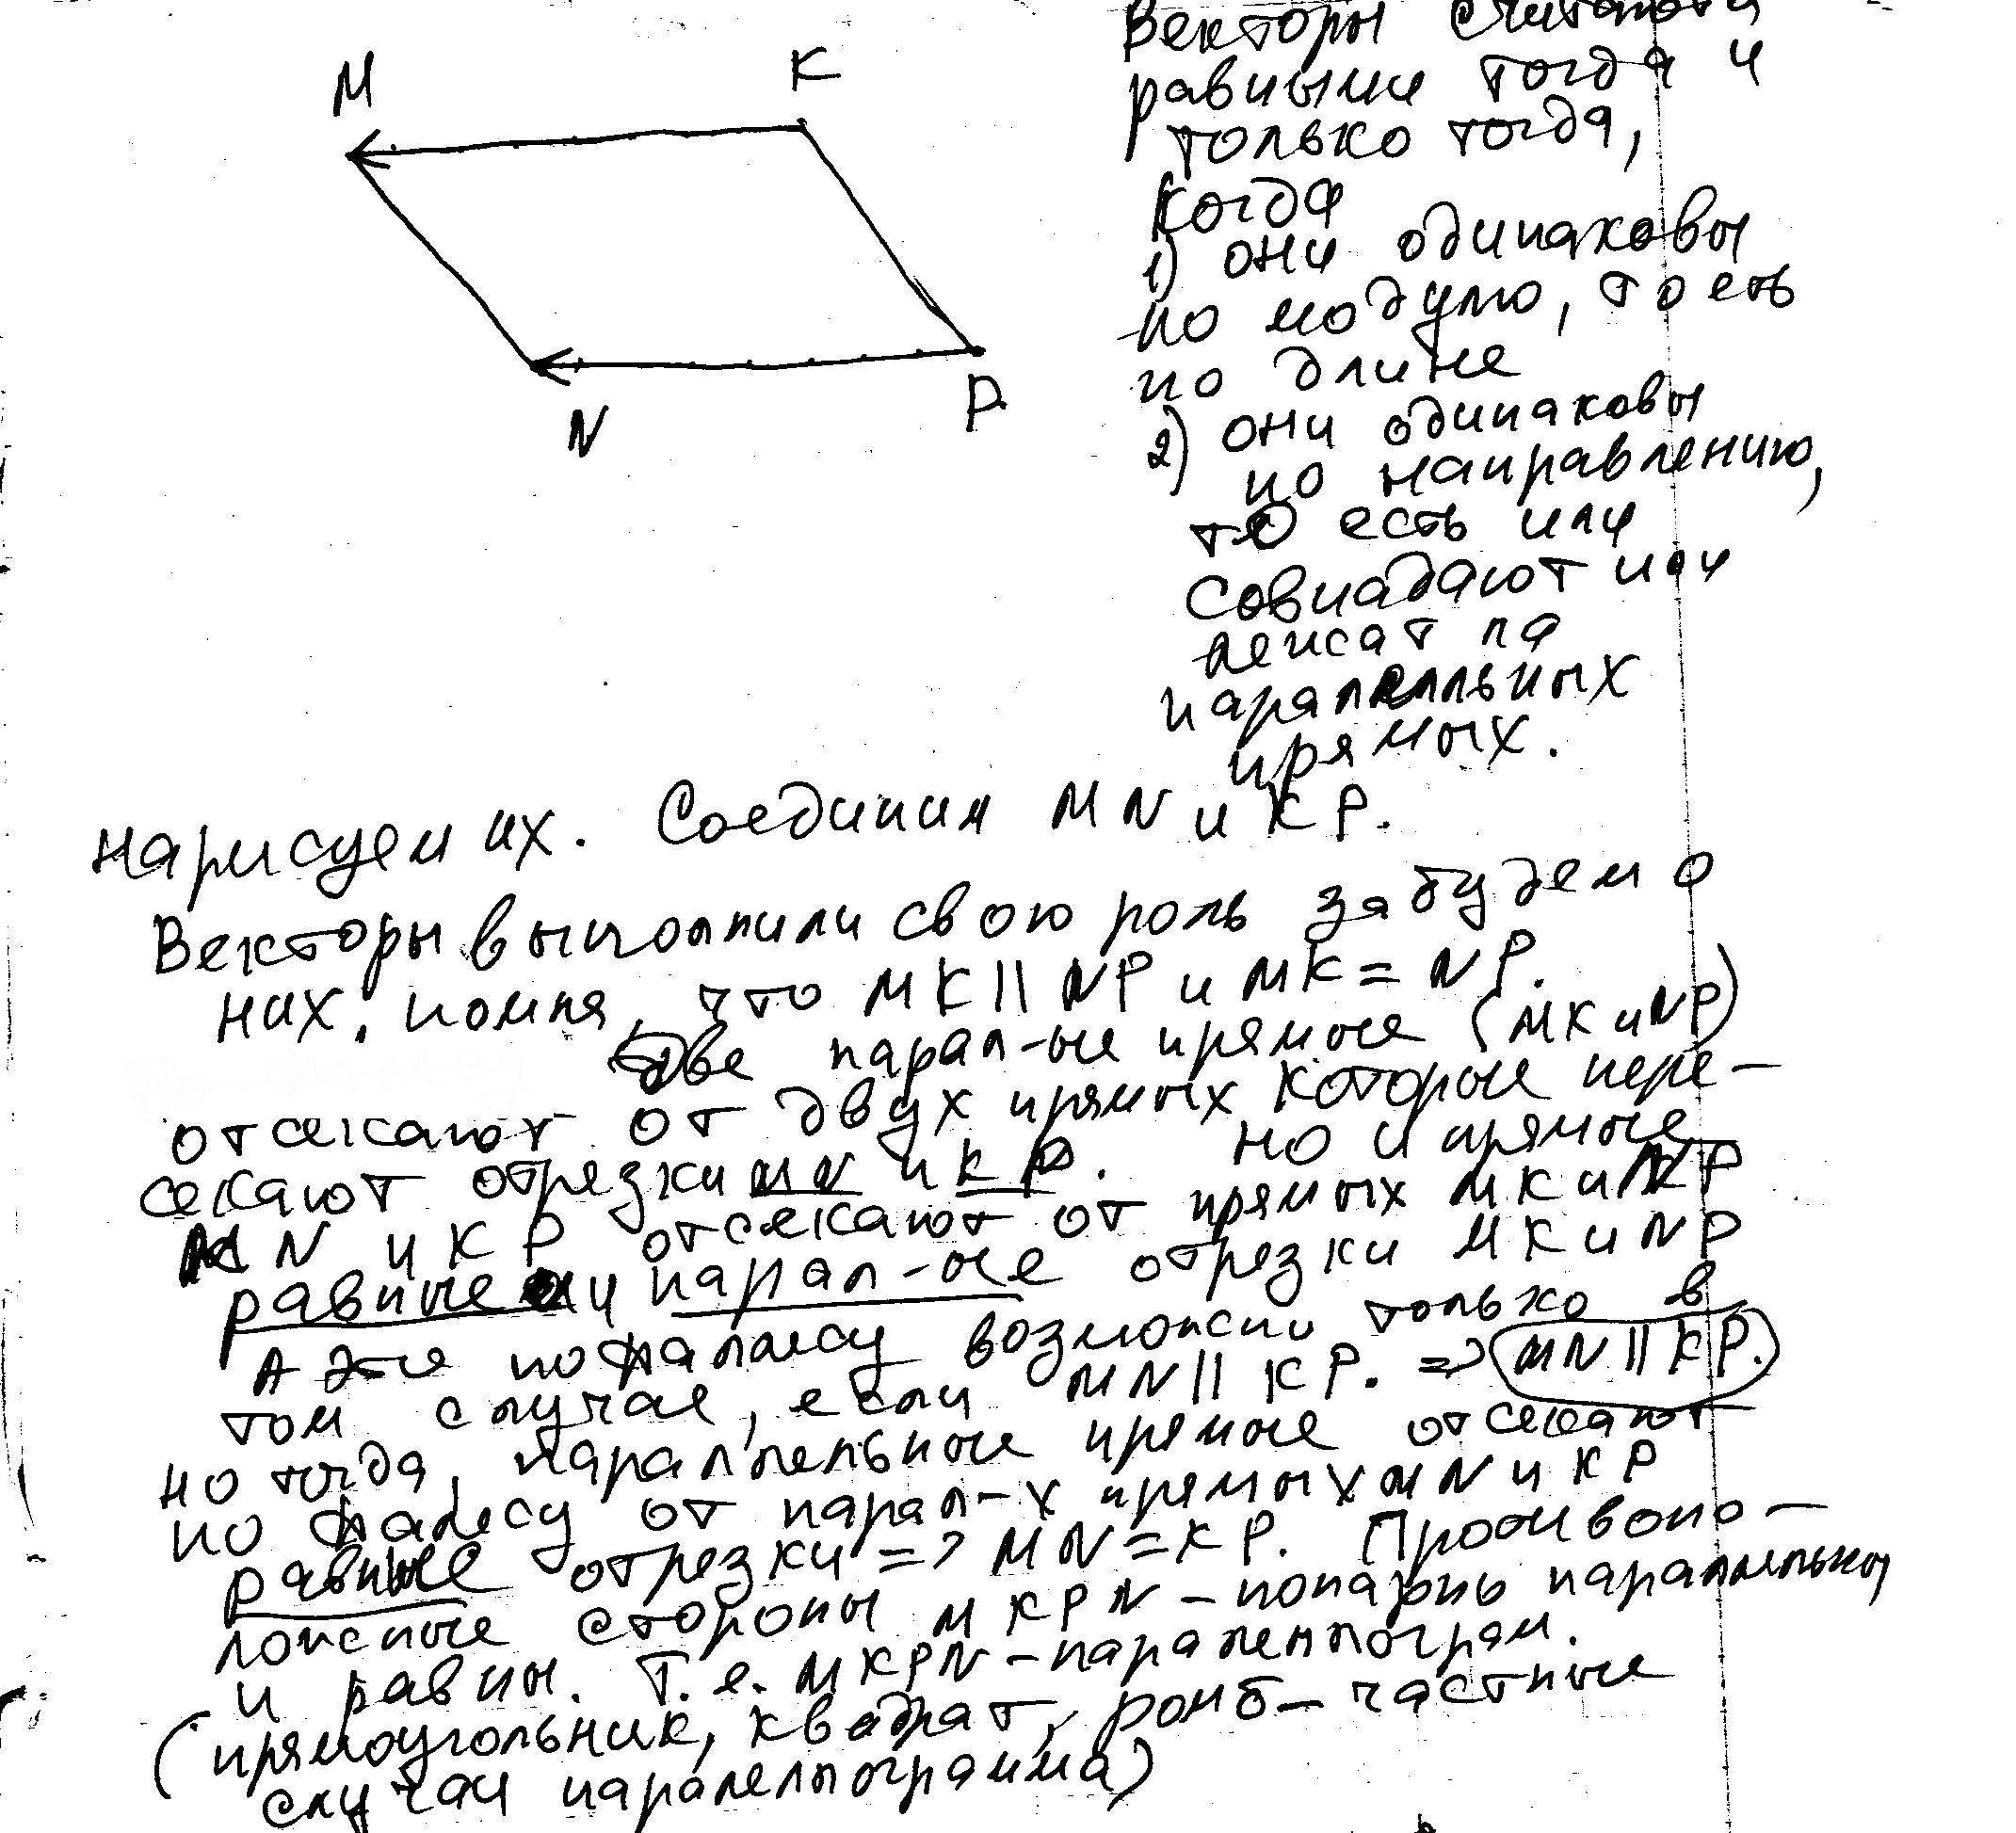 М
К
N
Р
Векторы считаются
равными тогда и
только тогда,
когда
1) они одинаковы
по модулю, то есть
по длине
2) они одинаковы
по направлению,
то есть или
совпадают или
лежат на
параллельных
прямых.
нарисуем их. Соединим MN и KP.
Векторы выполнили свою роль забудем о
них, помня, что MK || NP и MK = NP.
Две парал-ые прямые (MK и NP)
отсекают от двух прямых которые пере-
секают отрезки MN и KP. Но и прямые
MN и KP отсекают от прямых MK и NP
равные и парал-ые отрезки MK и NP
А это по Фалесу возможно только в
том случае, если MN || KP. => MN || KP.
но тогда, параллельные прямые отсекают
по Фалесу от парал-х прямых MN и KP
равные отрезки => MN = KP. Противопо-
ложные стороны MKPN - попарно параллельны
и равны. Т.е. MKPN - параллелограм.
(прямоугольник, квадрат, ромб - частные
случаи паралелограмма)